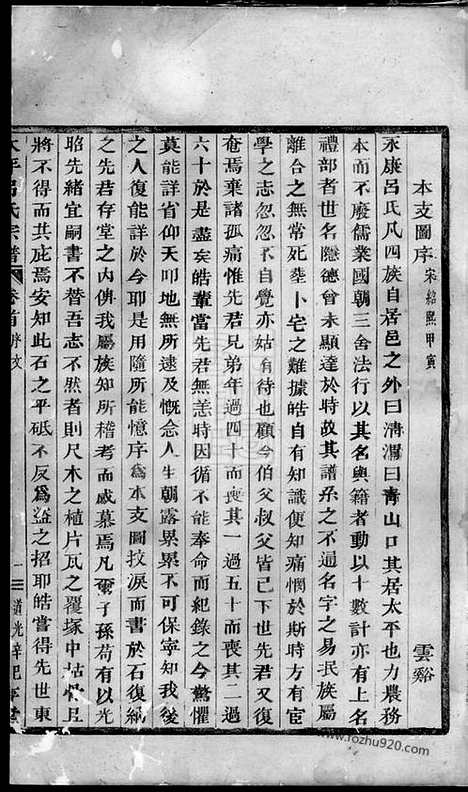 本支圖序 宋紹熙甲寅 雲谿
永康呂氏凡四族自居邑之外曰淸渭曰靑山口其居太平也力農務
本而不廢儒業國朝三舍法行以其名與籍者動以十數計亦有上名
禮部者世名隱德曾未顯達於時故其譜系之不通名字之易民族屬
離合之無常死塟卜宅之難據皓自有知識便知痛憫於斯時方有宦
學之志忽忽不自覺亦姑有待也顧今伯父叔父皆已下世先君又復
奄焉棄諸孤痛惟先君兄弟年過四十而喪其一過五十而喪其二過
六十於是盡矣皓輩當先君無恙時因循不能奉命而紀錄之今驚懼
莫能詳省仰天叩地無所逮及慨念人生朝露累累不可保寧知我後
之人復能詳於今耶是用隨所能憶序爲本支圖抆淚而書於石復納
之先君存堂之內俾我屬族知所稽考而感慕焉凡爾子孫苟有以光
昭先緒宜嗣書不替吾志不然者則尺木之植片瓦之覆塚中枯骨且
將不得而共庇焉安知此石之平砥不反爲盜之招耶皓嘗得先世東
太平呂氏宗譜 卷首序文 一 道光辛巳
www.fozhu920.com